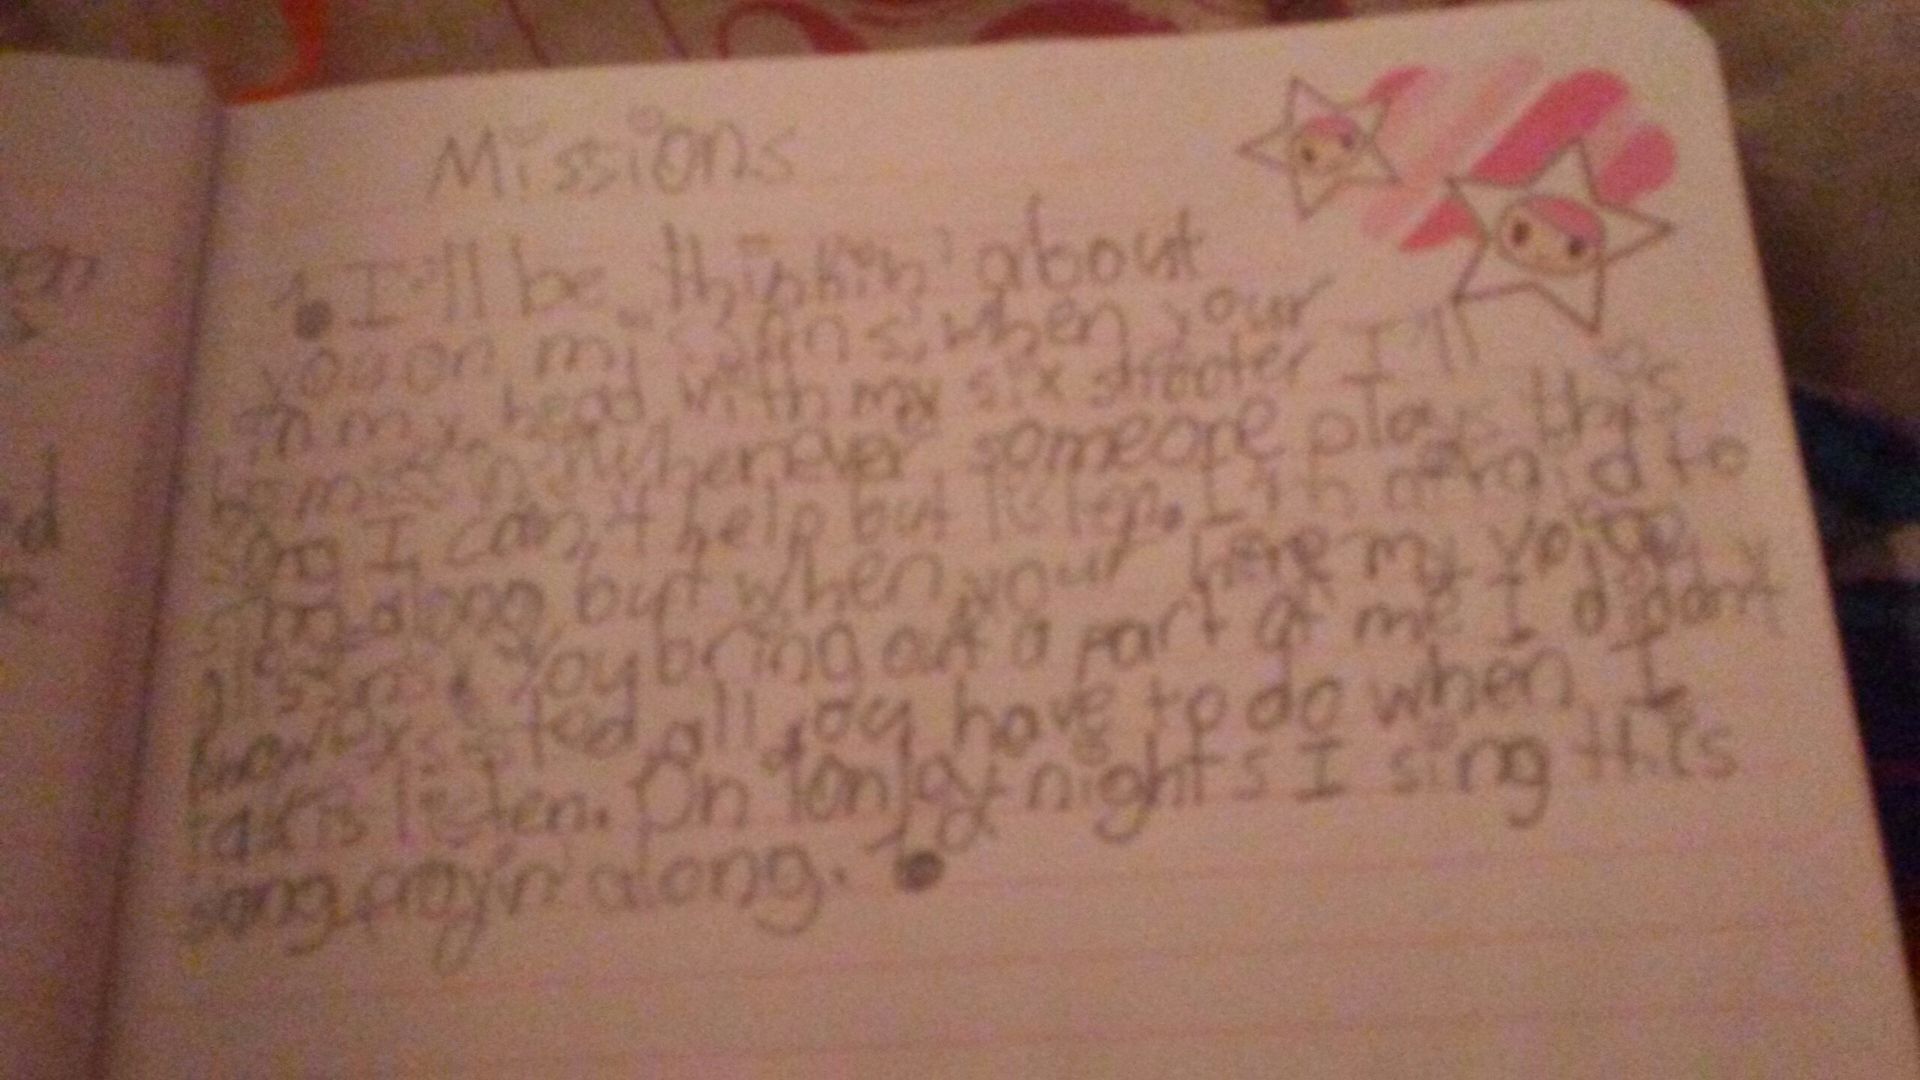 en
d
Missions
I'll be thinkin' about
you on my missions, when your
in my head with my six shooter I'll
be missin' Whenever someone plays this
song I can't help but listen. I'm afraid to
sing along but when your here my voice
You bring out a part of me I didn't
know existed all you have to do when I
talk is listen. On lonley nights I sing this
song prayin' along.